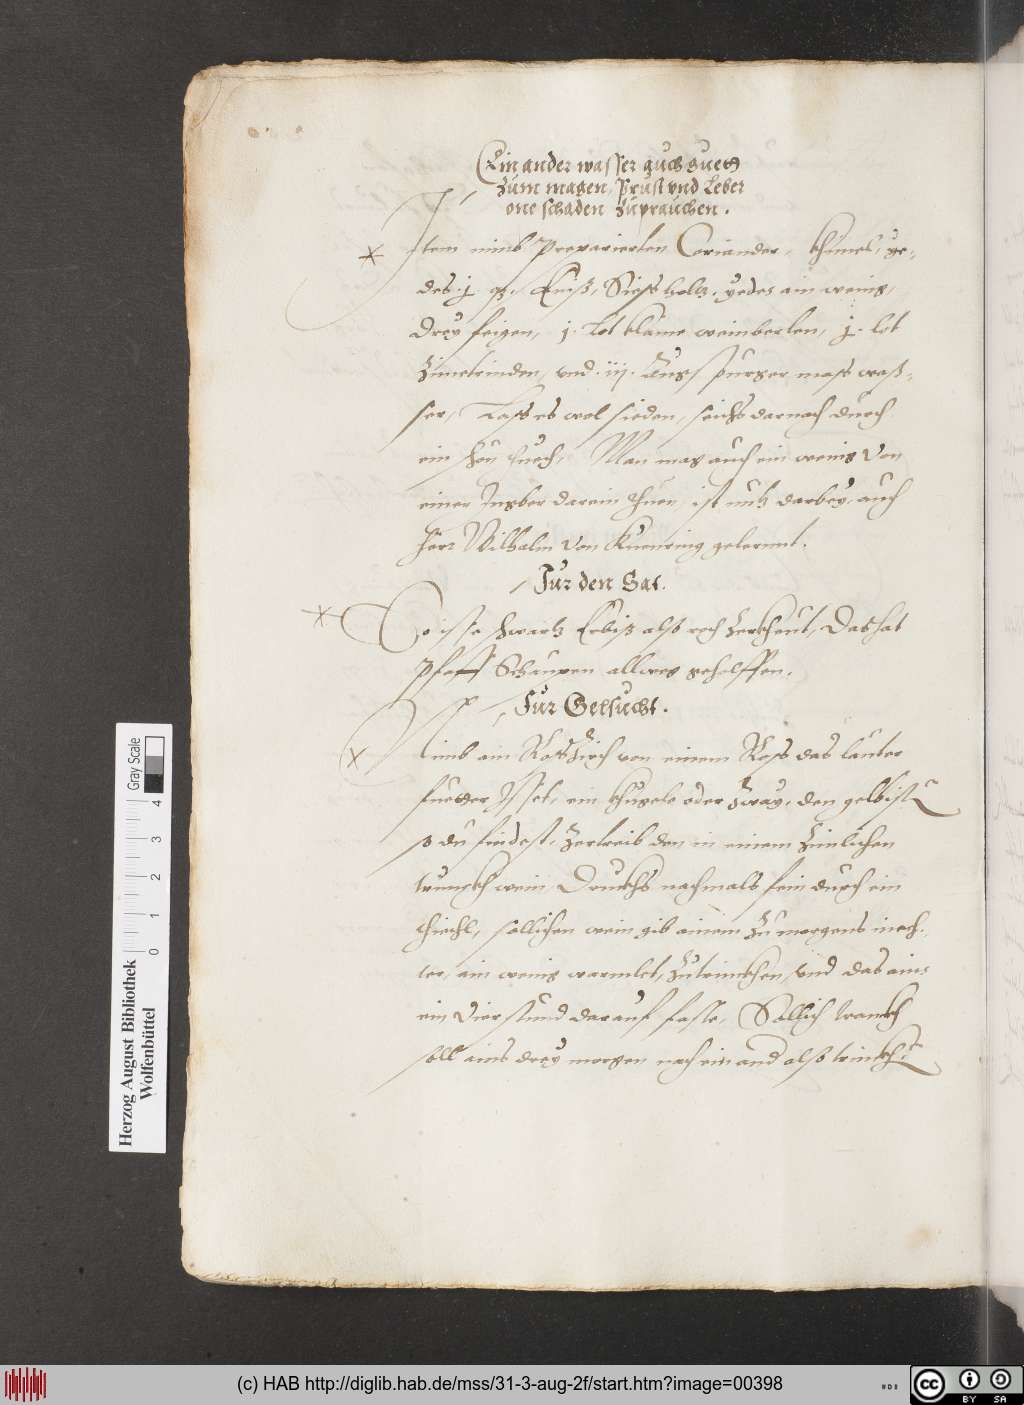 Ein ander wasser auch guett
zum magen, Prust und Leber
one schaden zuprauchen.
Item nimb Preparierten Coriander, khümel, ye-
des .j. qz. Eniß, Siesholtz, yedes ain wenig,
Drey feigen, j. Lot klaine weinberlen, j. lot
Zimetrinden, und .iij. Augspurger mass waß-
ser, Lass es wol sieden, seichs darnach durch
ein schön tuech, Man mag auch ein wenig von
einer Ingber darein thuen, ist nutz darbey, auch
Herr Wilhalm von Kuenring gelernnt.
Für den Gac.
So isse schwartz Erbiß also roch zerkheut, Das hat
Pfaff Schaupen allweg geholffen.
Für Gelsucht.
Nimb ain Roß von einem Roß das lauter
fuetter Isset, ein khugele oder zway, den gelbist
so du findest, Zertreib den in einem zimlichen
trunckh wein, Druckhs nachmals fein durch ein
thiechl, sollichen wein gib ainem zu morgens niech-
ter, ain wenig warmlet, zutrinckhen, und das ains
ein vier stund darauf faste, Sollich tranckh
soll ains drey morgen nach einand also trinckh
Herzog August Bibliothek
Wolfenbüttel
0 1 2 3 4
Gray Scale
(c) HAB http://diglib.hab.de/mss/31-3-aug-2f/start.htm?image=00398
cc
BY SA